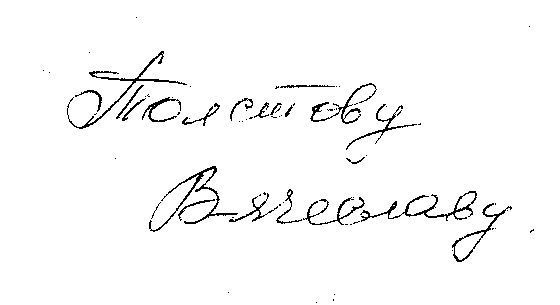 Толстову
Вячеславу